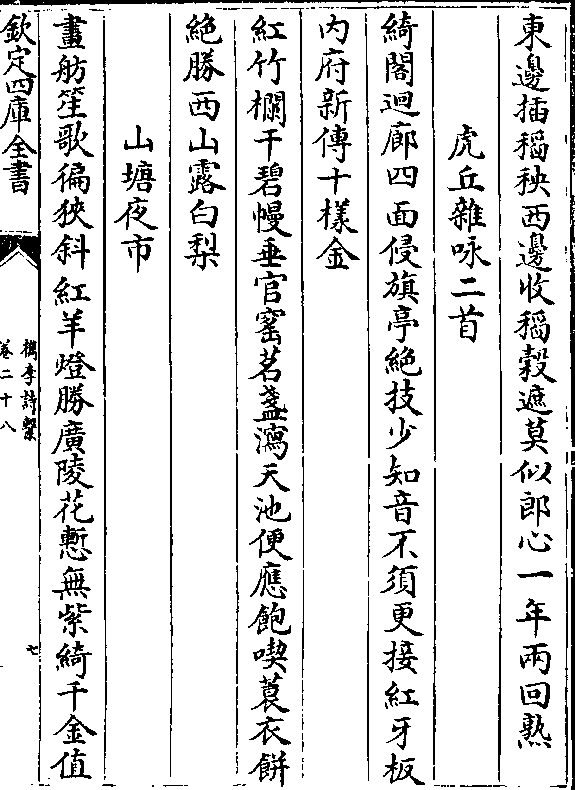 東邊插稻秧西邊收稻穀遮莫似郎心一年兩回熟
虎丘雜咏二首
綺閣迴廊四面侵旗亭絶技少知音不須更接紅牙板
内府新傳十様金
紅竹欄干碧幔垂官窰茗盞瀉天池便應飽喫蓑衣餅
絶勝西山露白梨
山塘夜市
畫舫笙歌徧狹斜紅羊燈勝廣陵花慙無紫綺千金值
欽定四庫全書
檇李詩繫
卷二十八
七